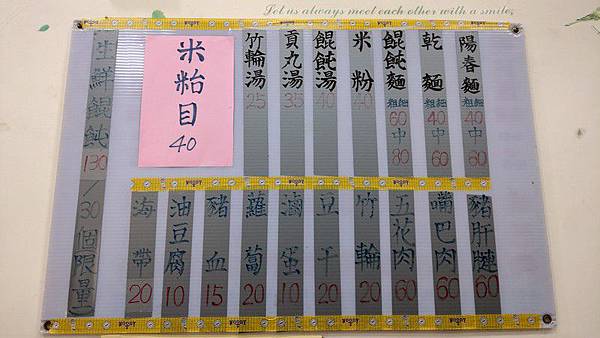 Let us always meet each other with a smile,
陽春麵 粗細 40 中 60
乾麵 粗細 40 中 60
餛飩麵 粗細 60 中 80
米粉 40
餛飩湯 40
貢丸湯 35
竹輪湯 25
米粭目 40
豬肝腱 60
嘴巴肉 60
五花肉 60
竹輪 20
豆干 20
滷蛋 10
蘿蔔 20
豬血 15
油豆腐 10
海帶 20
生鮮餛飩 130/30個(限量)